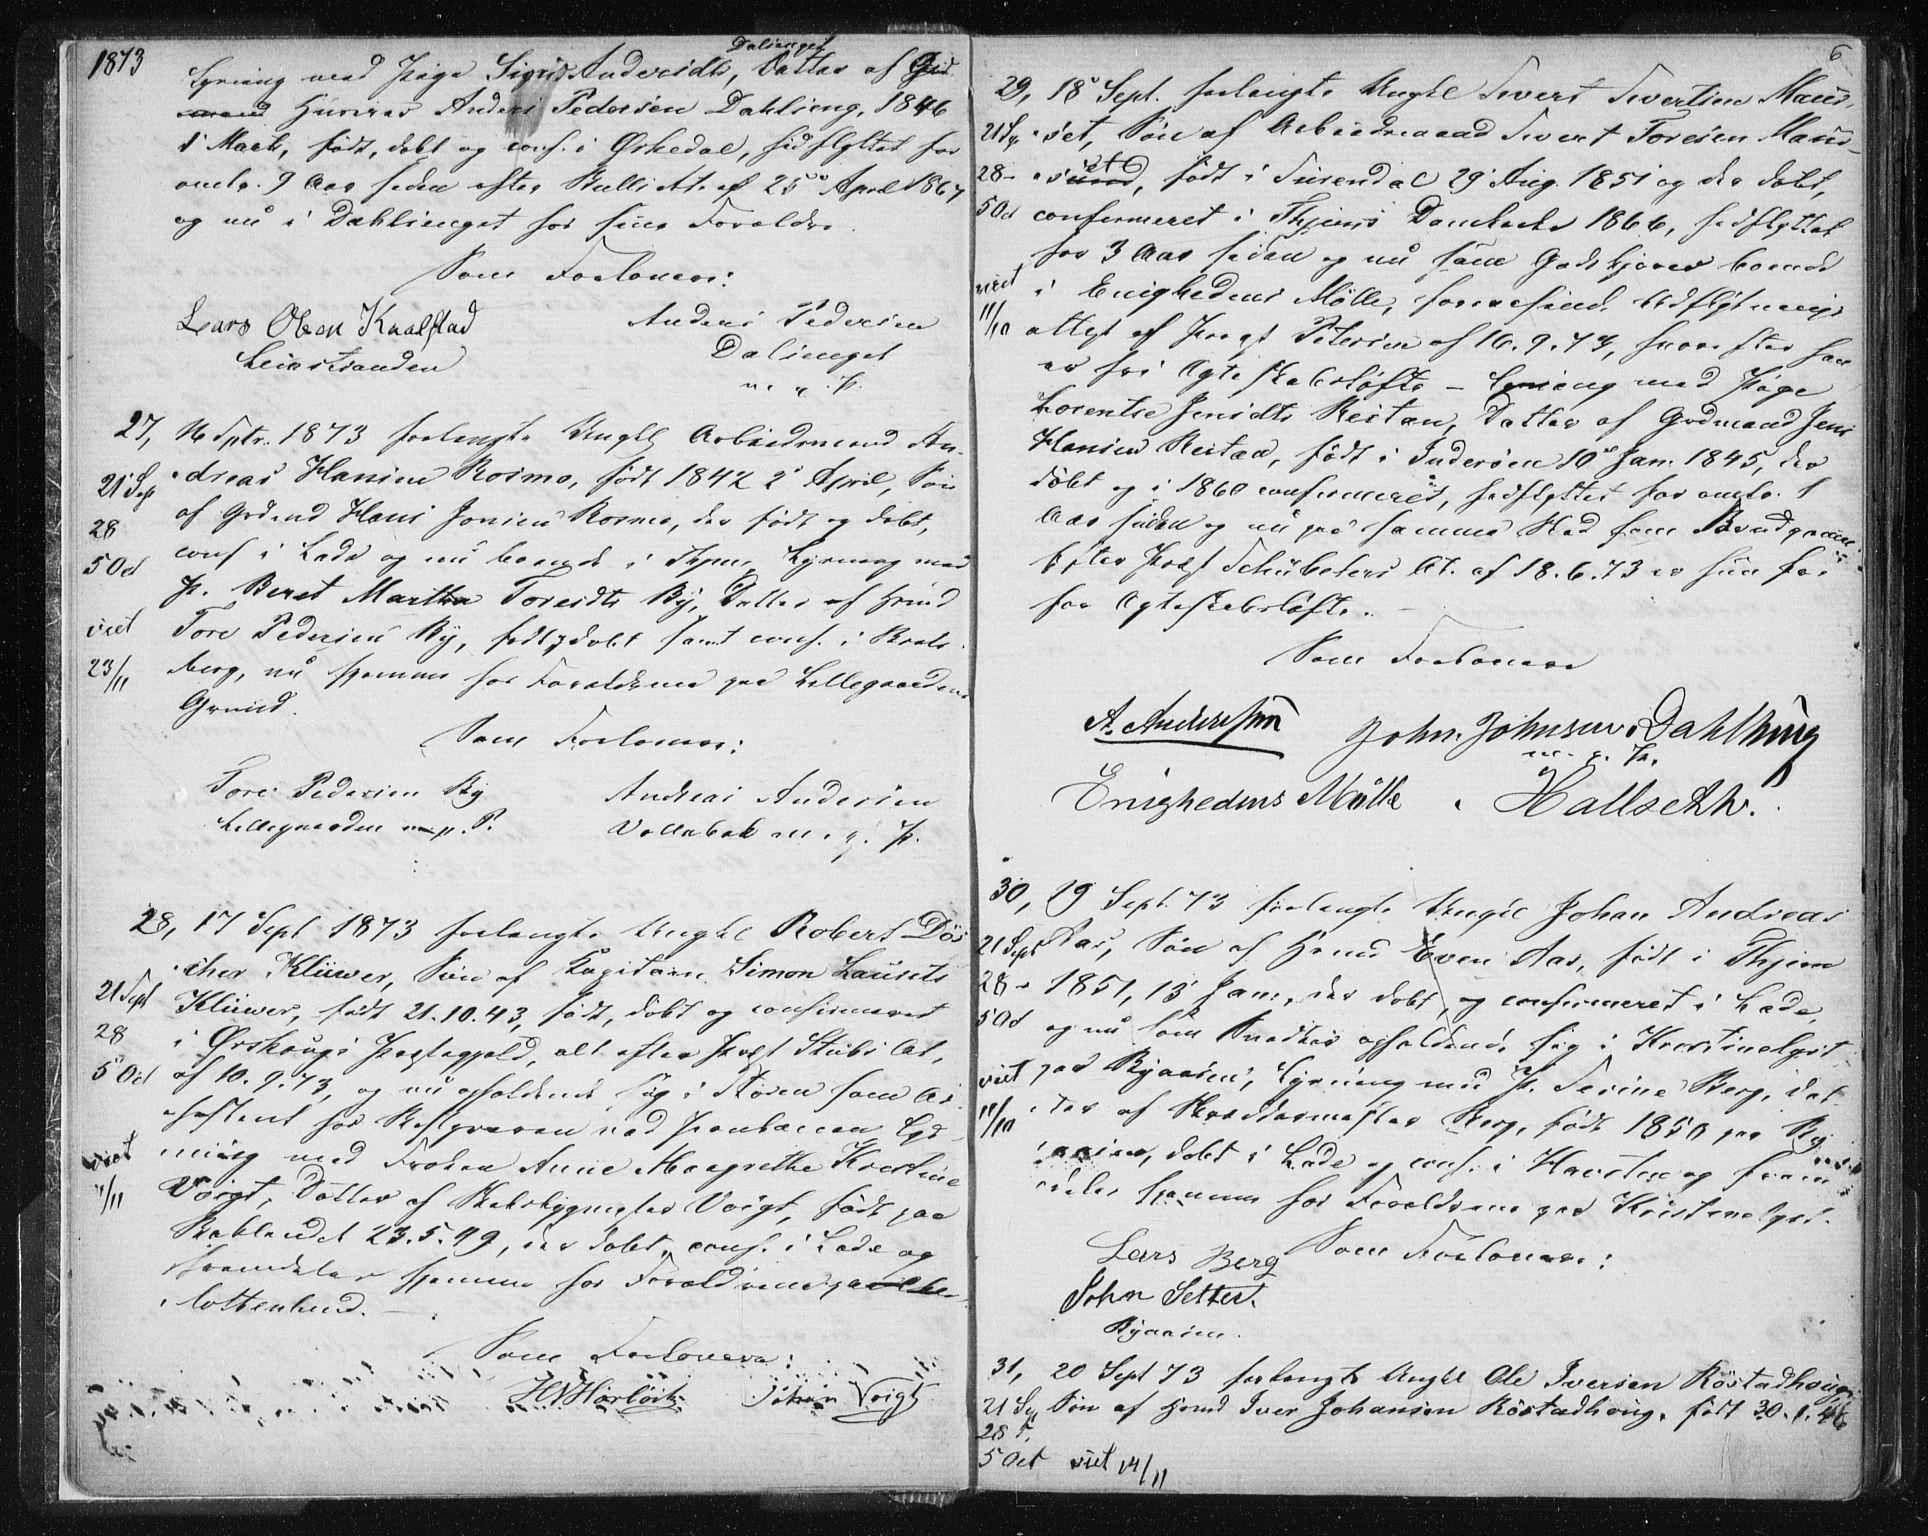 1873
Lysning med Pige Sigrid Andersdtr, Datter af
Dalienget
Husmand Anders Pedersen Dahlieng, 1846
1 Mark, født, døbt og conf. i Ørkedal, hidflyttet for
omtr. 9 Aar siden efter Attest af 25 April 1867
og nu i Dahlienget hos sine Foreldre.
Som Forlovere:
Lars Olsen Kualstad
Leinstranden
Anders Pedersen
Dalienget
m. p. P.
27, 16 Septr. 1873 forlangte Ungkl Arbeidsmand An-
dreas Hansen Rosmo, født 1842 2 April, Søn
af Grdmd Hans Jonsen Rosmo, der født og døbt,
conf i Lade og nu boende i Thjem, Lysning med
P. Beret Martha Toresdtr By, Datter af Hsmd
Tore Pedersen By, født, døbt samt conf. i Brats-
berg, nu hjemme hos Forældrene paa Lillegaardens
Grund.
21 Sep
28
5 Oct
viet
23/11
Som Forlovere:
Tore Pedersen By
Lillegaarden m. p. P.
Andreas Andersen
Vollabak m. p. P.
28, 17 Sept 1873 forlangte Ungkl Robert Dös-
cher Klüwer, Søn af Capitain Simon Laurits
Klüwer, født 21.10.43, født, døbt og confirmeret
i Ørskougs Prestegjeld, alt efter Prest Stubs At.
af 10.9.73, og nu opholdende sig i Støren som As-
sistent hos Bestyreren ved Jernbanen Lys-
ning med Frøken Anne Margrethe Kirstine
Voigt, Datter af Skibsbygmester Voigt, født paa
Baklandet 23.5.49, der døbt, conf. i Lade og
fremdeles hjemme hos Forældrene paa Char-
lottenlund.
21 Sept
28
5 Oct
viet
11/11
Som Forlovere:
Johan Voigt
6
29, 18 Sept. forlangte Ungkl Sivert Sivertsen Maus-
set, Søn af Arbeidsmand Sivert Toresen Maus-
set, født i Surendal 29 Aug. 1851 og der døbt,
confirmeret i Thjems Domkirke 1866, hidflyttet
for 3 Aar siden og nu som Gadekjører boende
i Enighedens Mölle, forevisende Udflytnings
attest af Prest Petersen af 16.9.73, hvorefter han
er fri Ægteskabsløfte – Lysning med Pige
Lorentse Jensdtr Reitan, Datter af Grdmand Jens
Hansen Reitan, født i Inderøen 10 Jan. 1845, der
døbt og i 1860 confirmeret, hidflyttet for omtr. 1
Aar siden og nu paa samme Sted som Brudgommen
Efter Prest Schübelers At. af 18.6.73 er hun fri
for Ægteskabsløfte. –
21 Sp
28 –
5 Oct
viet
11/10
Som Forlovere
A. Anderssen
Enighedens Mölle
John Johnsen Dahlhaug
m. p. P.
Hallsetth.
30, 19 Sept 73 forlangte Ungkl Johan Andreas
Aas, Søn af Hsmd Even Aas, født i Thjem
1851, 13 Jan., der døbt, og confirmeret i Lade,
og nu som Snedker opholdende sig i Kristinelyst
paa Byaasen, Lysning med P. Serine Berg, Dat-
ter af Berg, født 1850 paa By-
aasen, døbt i Lade og conf. i Havstein og frem-
deles hjemme hos Forældrene paa Kristinelyst.
21 Sept
28 –
5 Oct
viet
11/10
Som Forlovere:
Lars Berg
John Setter.
Byaasen.
31, 20 Sept 73 forlangte Ungkl Ole Iversen Röstadhaug,
Søn af Hsmd Iver Johansen Röstadhaug, født 30.1.46
21 Sep
28 S.
5 Oct viet 14/11